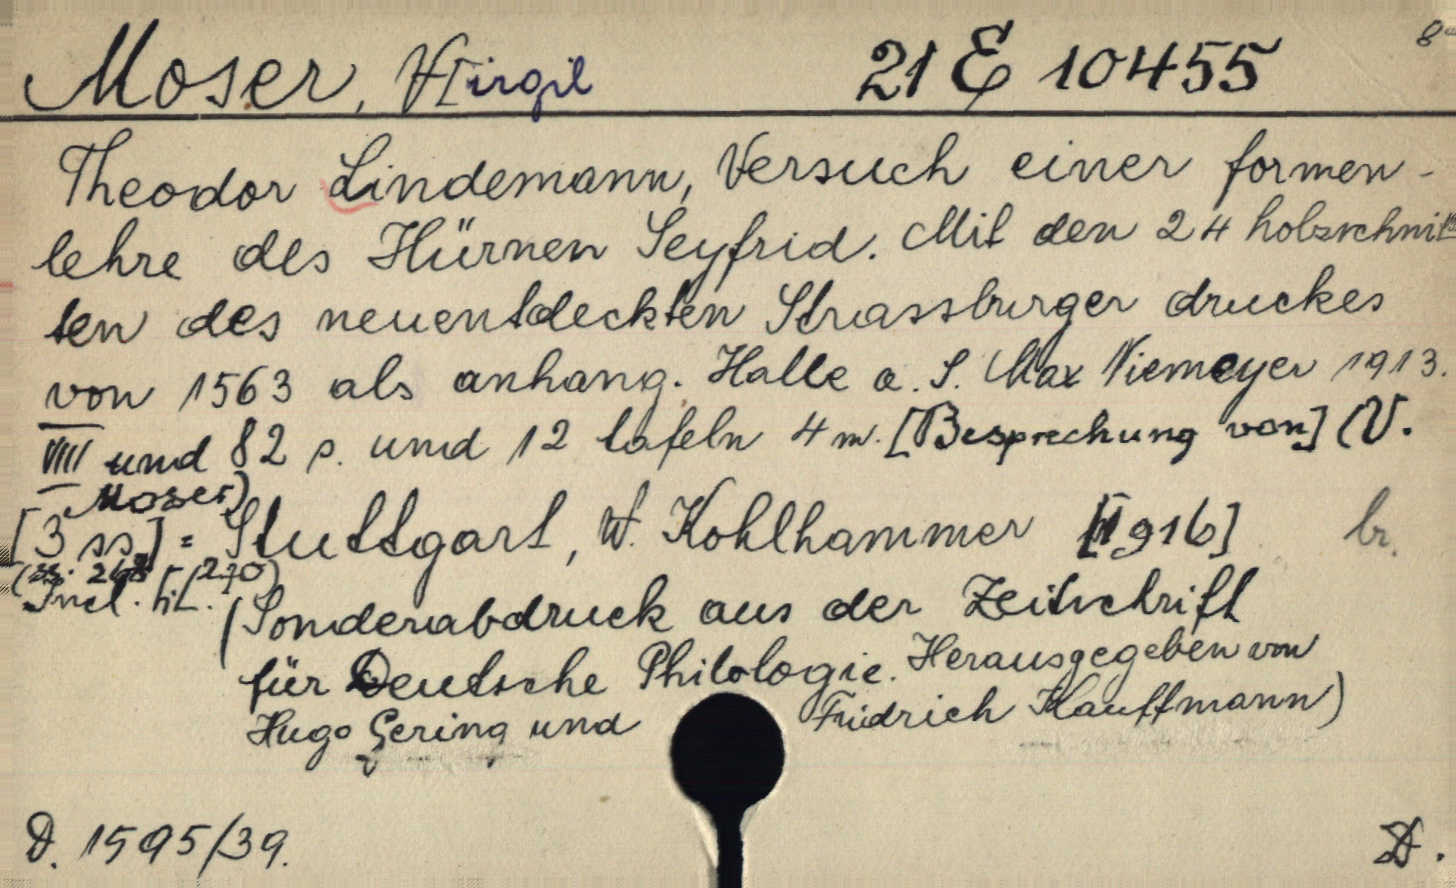 Moser, Virgil 21 E 10455 8°
Theodor Lindemann, Versuch einer formen-
lehre des Hürnen Seyfrid. Mit den 24 holzschnit
ten des neuentdeckten Strassburger druckes
von 1563 als anhang. Halle a. S. Max Niemeyer 1913.
VIII und 82 s. und 12 tafeln 4 m. [Besprechung von] (V.
Moser)
[3 ss.] = Stuttgart, W. Kohlhammer [1916] br.
(ss. 268-270)
(Sonderabdruck aus der Zeitschrift
für Deutsche Philologie. Herausgegeben von
Hugo Gering und Friedrich Kauffmann)
D. 1595/39. D.